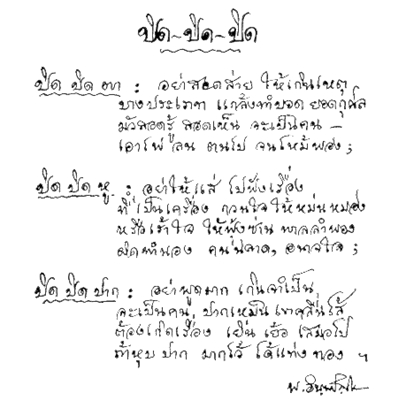 ปิด-ปิด-ปิด
ปิด ปิด ตา : อย่าสอดส่าย ให้เกินเหตุ
บางประเภท แกล้งทำบอด ยอดกุศล
มัวสอดรู้ สอดเห็น จะเป็นคน –
เอาไฟ ลน ตนไป จนไหม้พอง ;
ปิด ปิด หู : อย่าให้แส่ ไปฟังเรื่อง
ที่เป็นเครื่อง กวนใจ ให้หม่นหมอง
หรือเร้าใจ ให้ฟุ้งซ่าน พาลลำพอง
ผิดทำนอง คนฉลาด, อนาถใจ ;
ปิด ปิด ปาก : อย่าพูดมาก เกินจำเป็น
จะเป็นคน ปากเหม็น เขาคลื่นไส้
ต้องเกิดเรื่อง เยิ่นเย้อ เสมอไป
ถ้าหุบปาก มากไว้ ได้แท่งทอง ฯ
พ. อินทปัญโญ